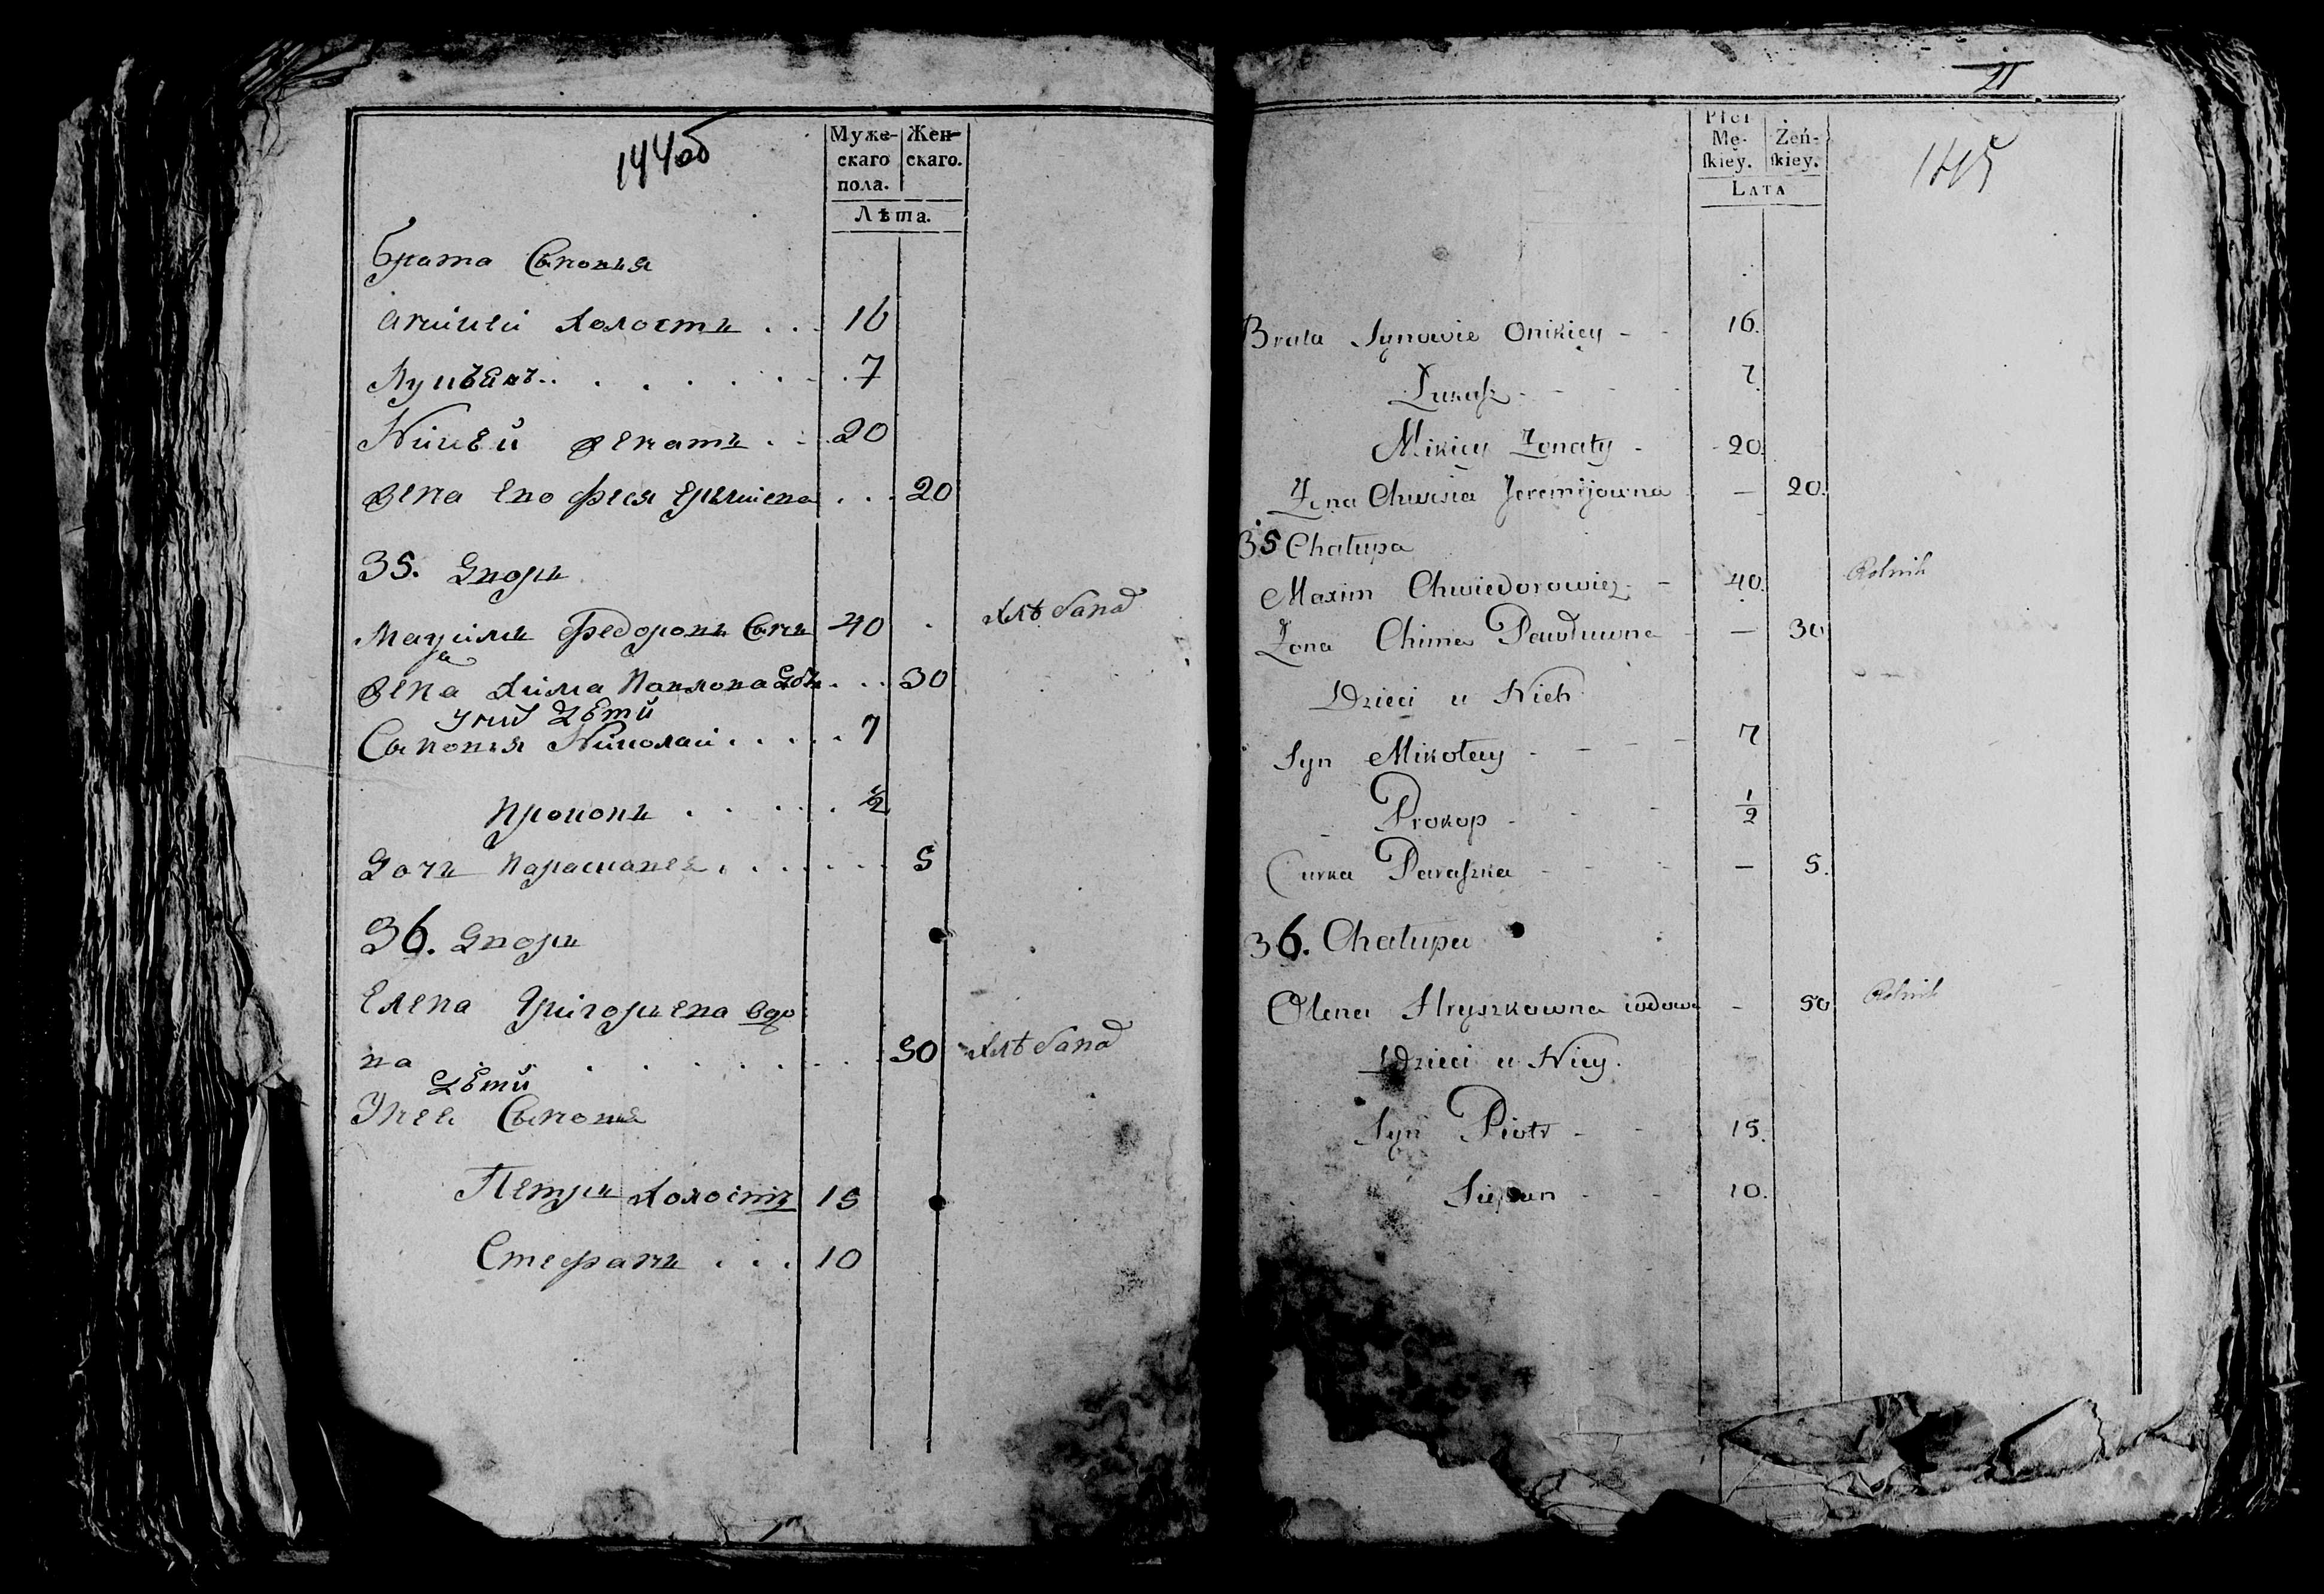 144об
Муже-
скаго
пола.
Жен-
скаго.
Лѣта.
брата Сыновья
аникѣй Холостъ . . 16
Лукъянъ . . . . . . . 7
Никѣй женатъ . . . 20
жена Ево Феся Ерьмиева . . . 20
35. Дворъ
Максимъ Федоровъ Сынъ 40 Хлѣбопа
жена Хима Павлова Дочь . . . 30
у них Дѣти
Сыновья Николаи . . . . . 7
Прокопъ . . . . . ½
Дочь Параскавея . . . . . . 5
36. Дворъ
Елена Григорьева вдо
ва . . . . . . . . 50 Хлѣбопа
Дѣти
Унее Сыновья
Петръ Холостъ 15
Стефанъ . . . 10
21
145
Płci
Mę-
skiey.
Żeń-
skiey.
LATA
Brata Synowie Onikiey - - 16.
Łukasz - - - 7
Mikiey Żonaty - - 20.
Żona Chwesia Jeremijowna - — 20.
35 Chałupa
Maxim Chwiedorowicz - - 40. Rolnik
Żona Chima Pawłuwna - — 30
Dzieci u Nich
Syn Mikołay - - - - 7
Prokop - - - ½
Curka Paraszka - - - — 5.
36. Chałupa
Olena Hryszkowna wdowa - 50 Rolnik
Dzieci u Niey.
Syn Piotr - - 15.
Stepan - - 10.